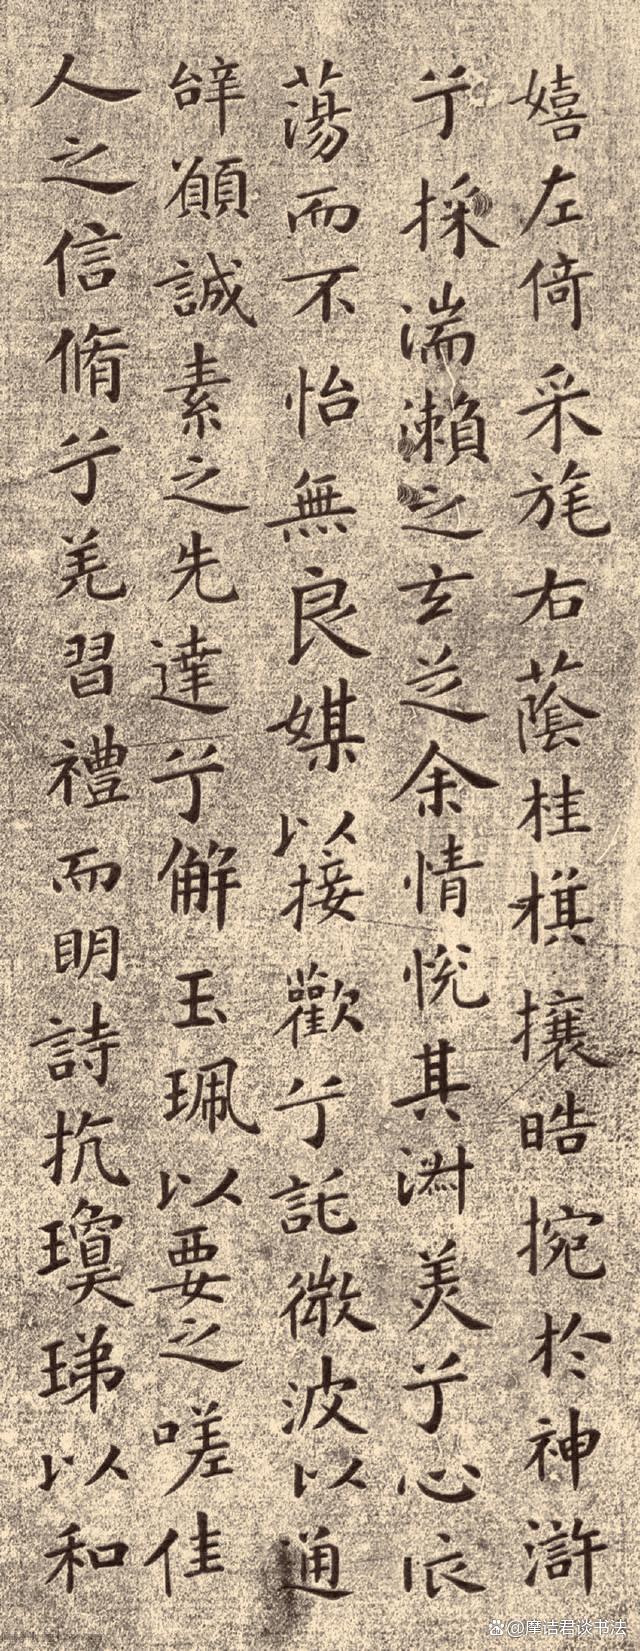 嬉左倚采旄右蔭桂棋攘晧捥於神滸
兮採湍瀨之玄芝余情悅其淑美兮心振
蕩而不怡無良媒以接歡兮託微波以通
辝願誠素之先達兮解玉珮以要之嗟佳
人之信脩兮羌習禮而眀詩抗瓊珶以和
@摩诘君谈书法